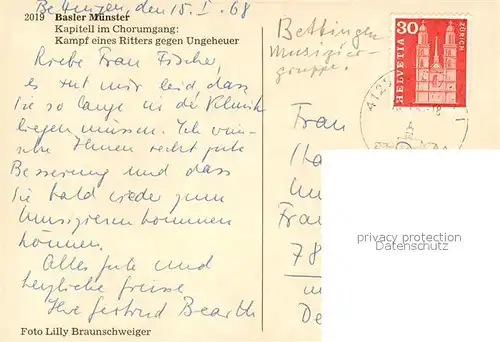 Bettingen, den 15. I. 68
2019 Basler Münster
Kapitell im Chorumgang:
Kampf eines Ritters gegen Ungeheuer
Liebe Frau Fischer,
es tut mir leid, dass
Sie so lange in der Klinik
liegen müssen. Ich wün-
sche Ihnen recht gute
Besserung und dass
Sie bald wieder zum
Musizieren kommen
können.
Alles gute und
herzliche Grüsse
Ihre Gertrud Bearth
Foto Lilly Braunschweiger
Bettingen
Musizier-
gruppe.
30
HELVETIA
ZÜRICH
412
Frau
Frau
78
privacy protection
Datenschutz